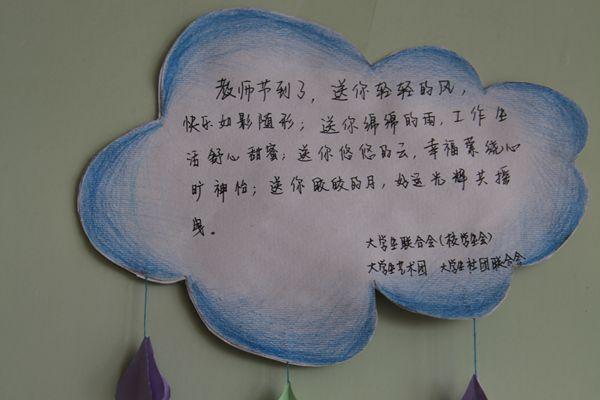 教师节到了，送你轻轻的风，
快乐如影随形；送你绵绵的雨，工作生
活舒心甜蜜；送你悠悠的云，幸福萦绕心
旷神怡；送你皎皎的月，好运光辉共摇
曳。
大学生联合会（校学生会）
大学生艺术团 大学生社团联合会